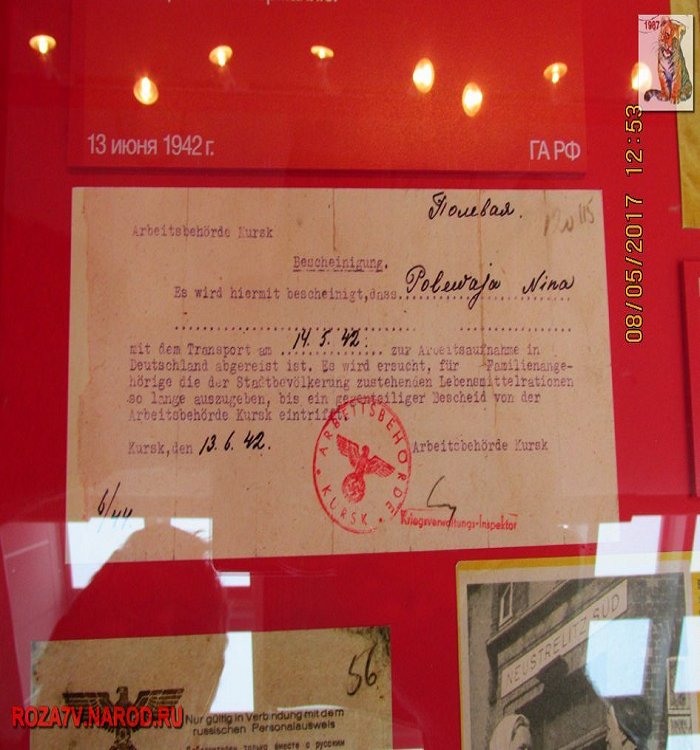 1987
13 июня 1942 г.
ГА РФ
08/05/2017 12:53
Полевая.
120/115
Arbeitsbehörde Kursk
Bescheinigung.
Es wird hiermit bescheinigt, dass Polewaja Nina
mit dem Transport am 14.5.42. zur Arbeitsaufnahme in
Deutschland abgereist ist. Es wird ersucht, für Familienange-
hörige die der Stadtbevölkerung zustehenden Lebensmittelrationen
so lange auszugeben, bis ein gegenteiliger Bescheid von der
Arbeitsbehörde Kursk eintrifft.
Kursk, den 13.6.42.
Arbeitsbehörde Kursk
ARBEITSBEHÖRDE
KURSK
Kriegsverwaltungs-Inspektor
6/44
56
NEUSTRELITZ SÜD
ROZA7V.NAROD.RU
Nur gültig in Verbindung mit dem
russischen Personalausweis
только вместе с русским